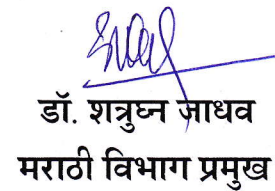 डॉ. शत्रुघ्न जाधव
मराठी विभाग प्रमुख